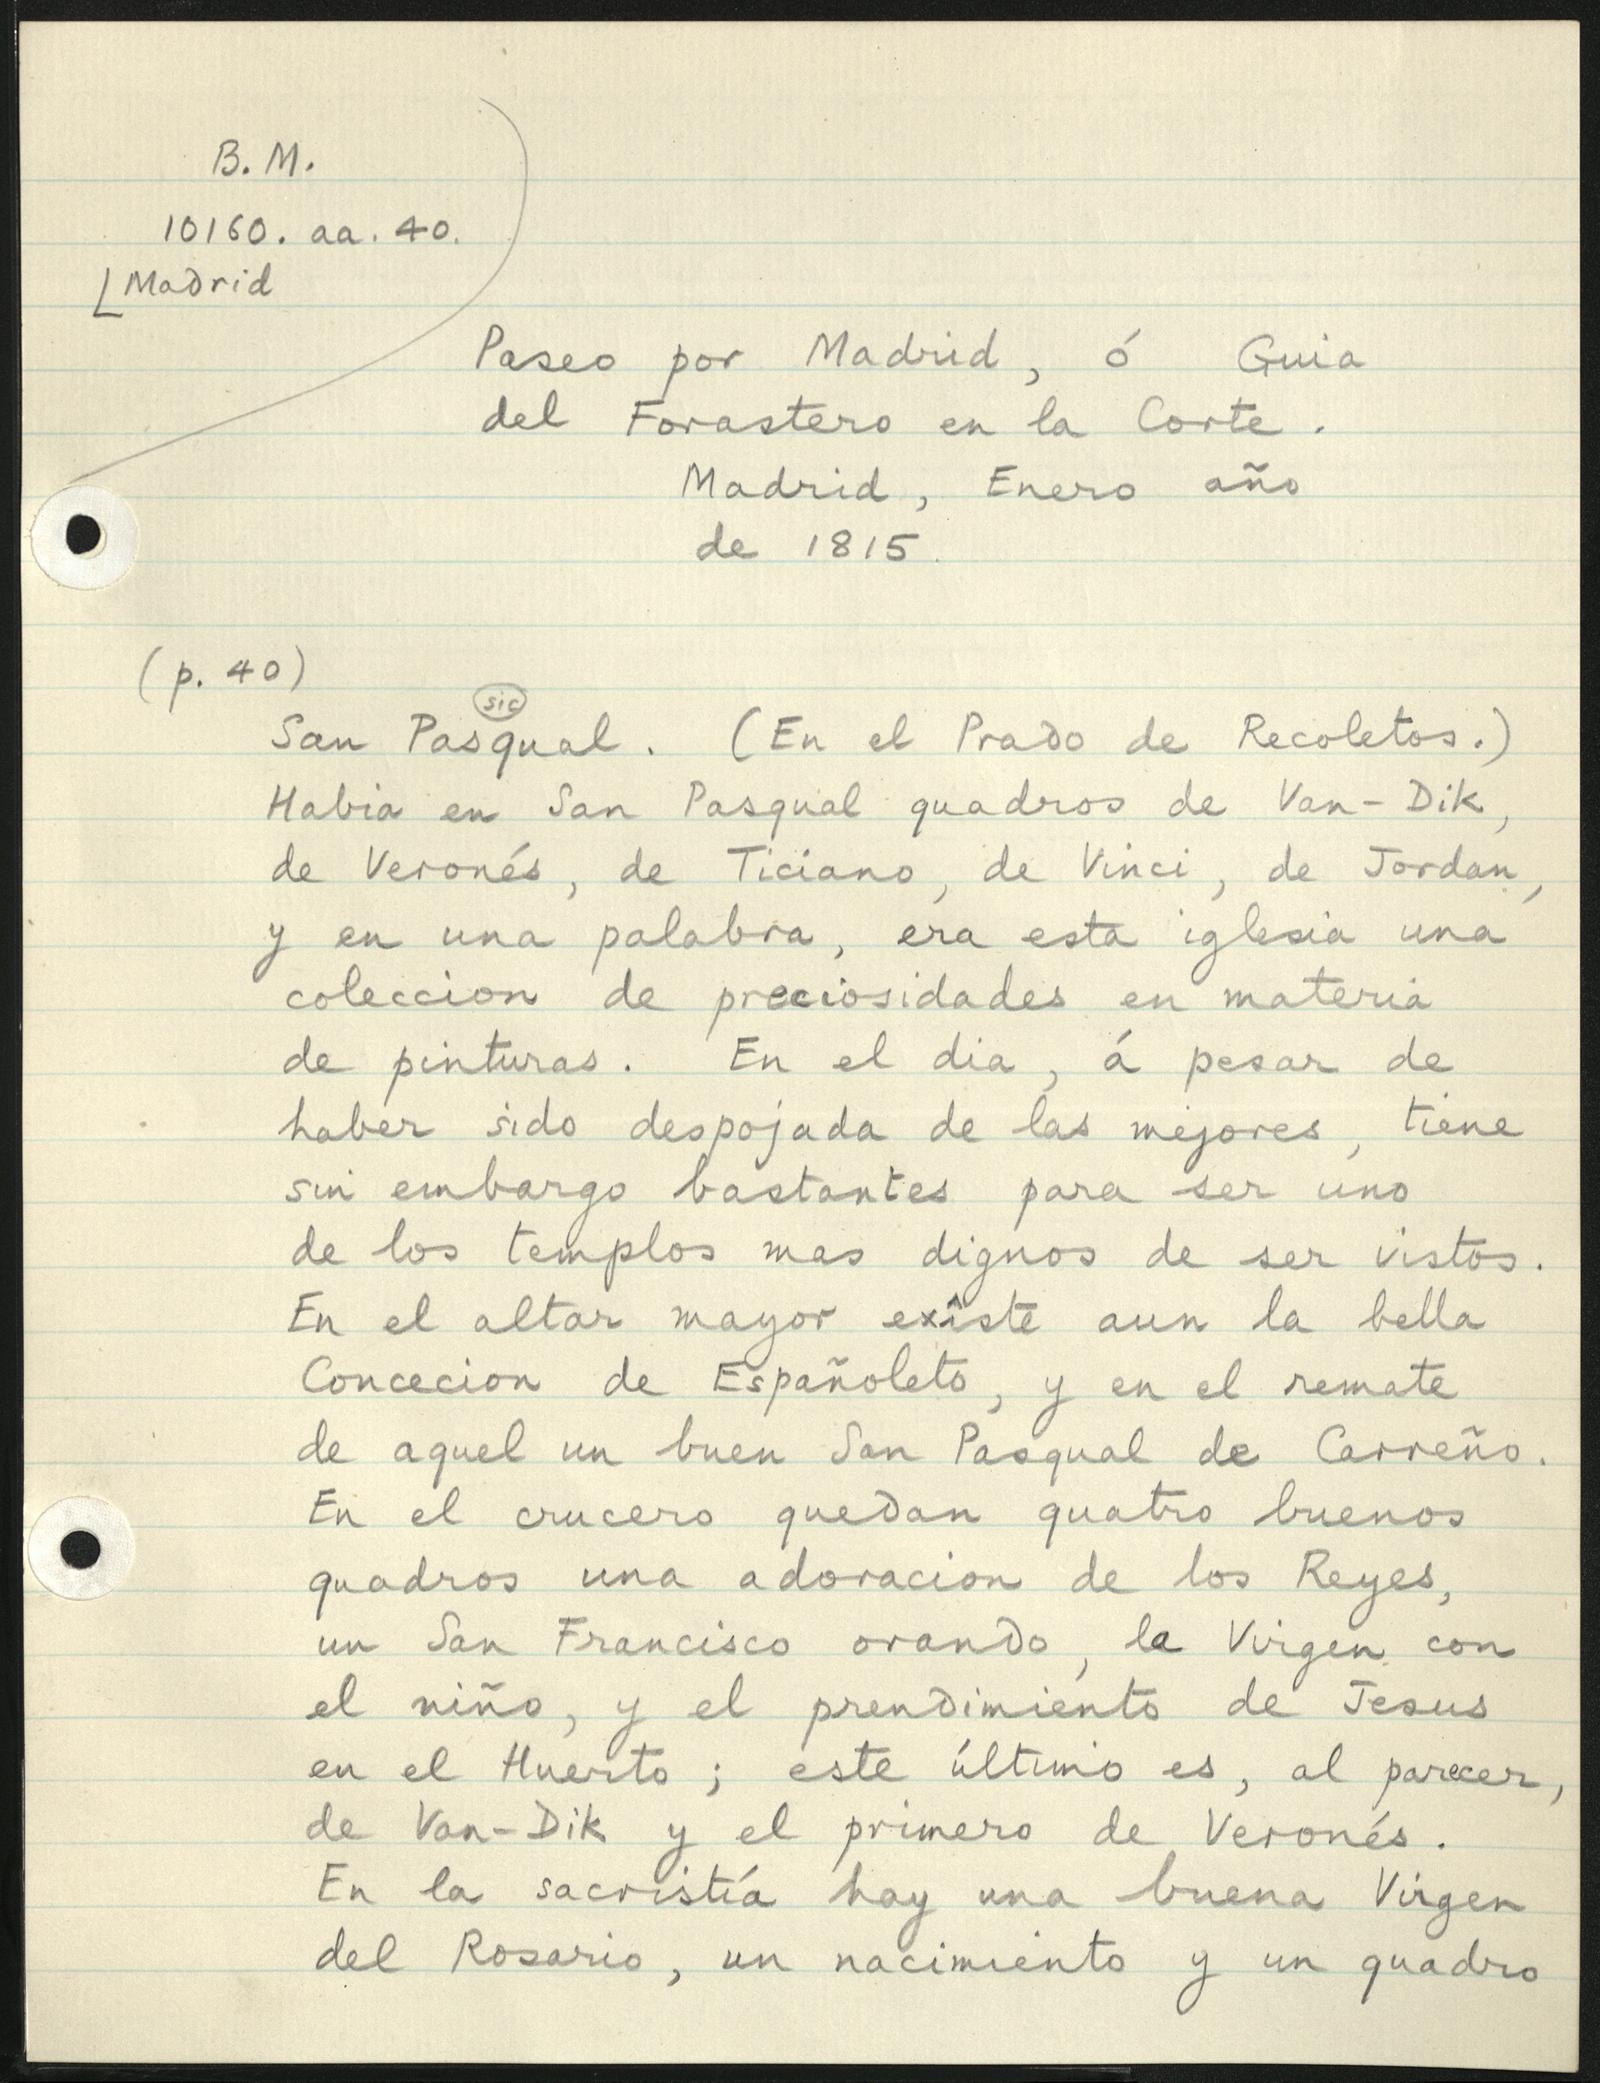 B. M.
10160. aa. 40.
Madrid
Paseo por Madrid, ó Guia
del Forastero en la Corte.
Madrid, Enero año
de 1815.
(p. 40)
sic
San Pasqual. (En el Prado de Recoletos.)
Habia en San Pasqual quadros de Van-Dik,
de Veronés, de Ticiano, de Vinci, de Jordan,
y en una palabra, era esta iglesia una
coleccion de preciosidades en materia
de pinturas. En el dia, á pesar de
haber sido despojada de las mejores, tiene
sin embargo bastantes para ser uno
de los templos mas dignos de ser vistos.
En el altar mayor existe aun la bella
Concecion de Españoleto, y en el remate
de aquel un buen San Pasqual de Carreño.
En el crucero quedan quatro buenos
quadros una adoracion de los Reyes,
un San Francisco orando, la Virgen con
el niño, y el prendimiento de Jesus
en el Huerto; este último es, al parecer,
de Van-Dik y el primero de Veronés.
En la sacristía hay una buena Virgen
del Rosario, un nacimiento y un quadro